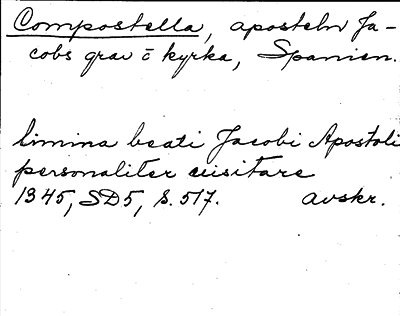 Compostella, aposteln Ja-
cobs grav o kyrka, Spanien.
limina beati Jacobi Apostoli
personaliter uisitare
1345, SD5, s. 517. avskr.